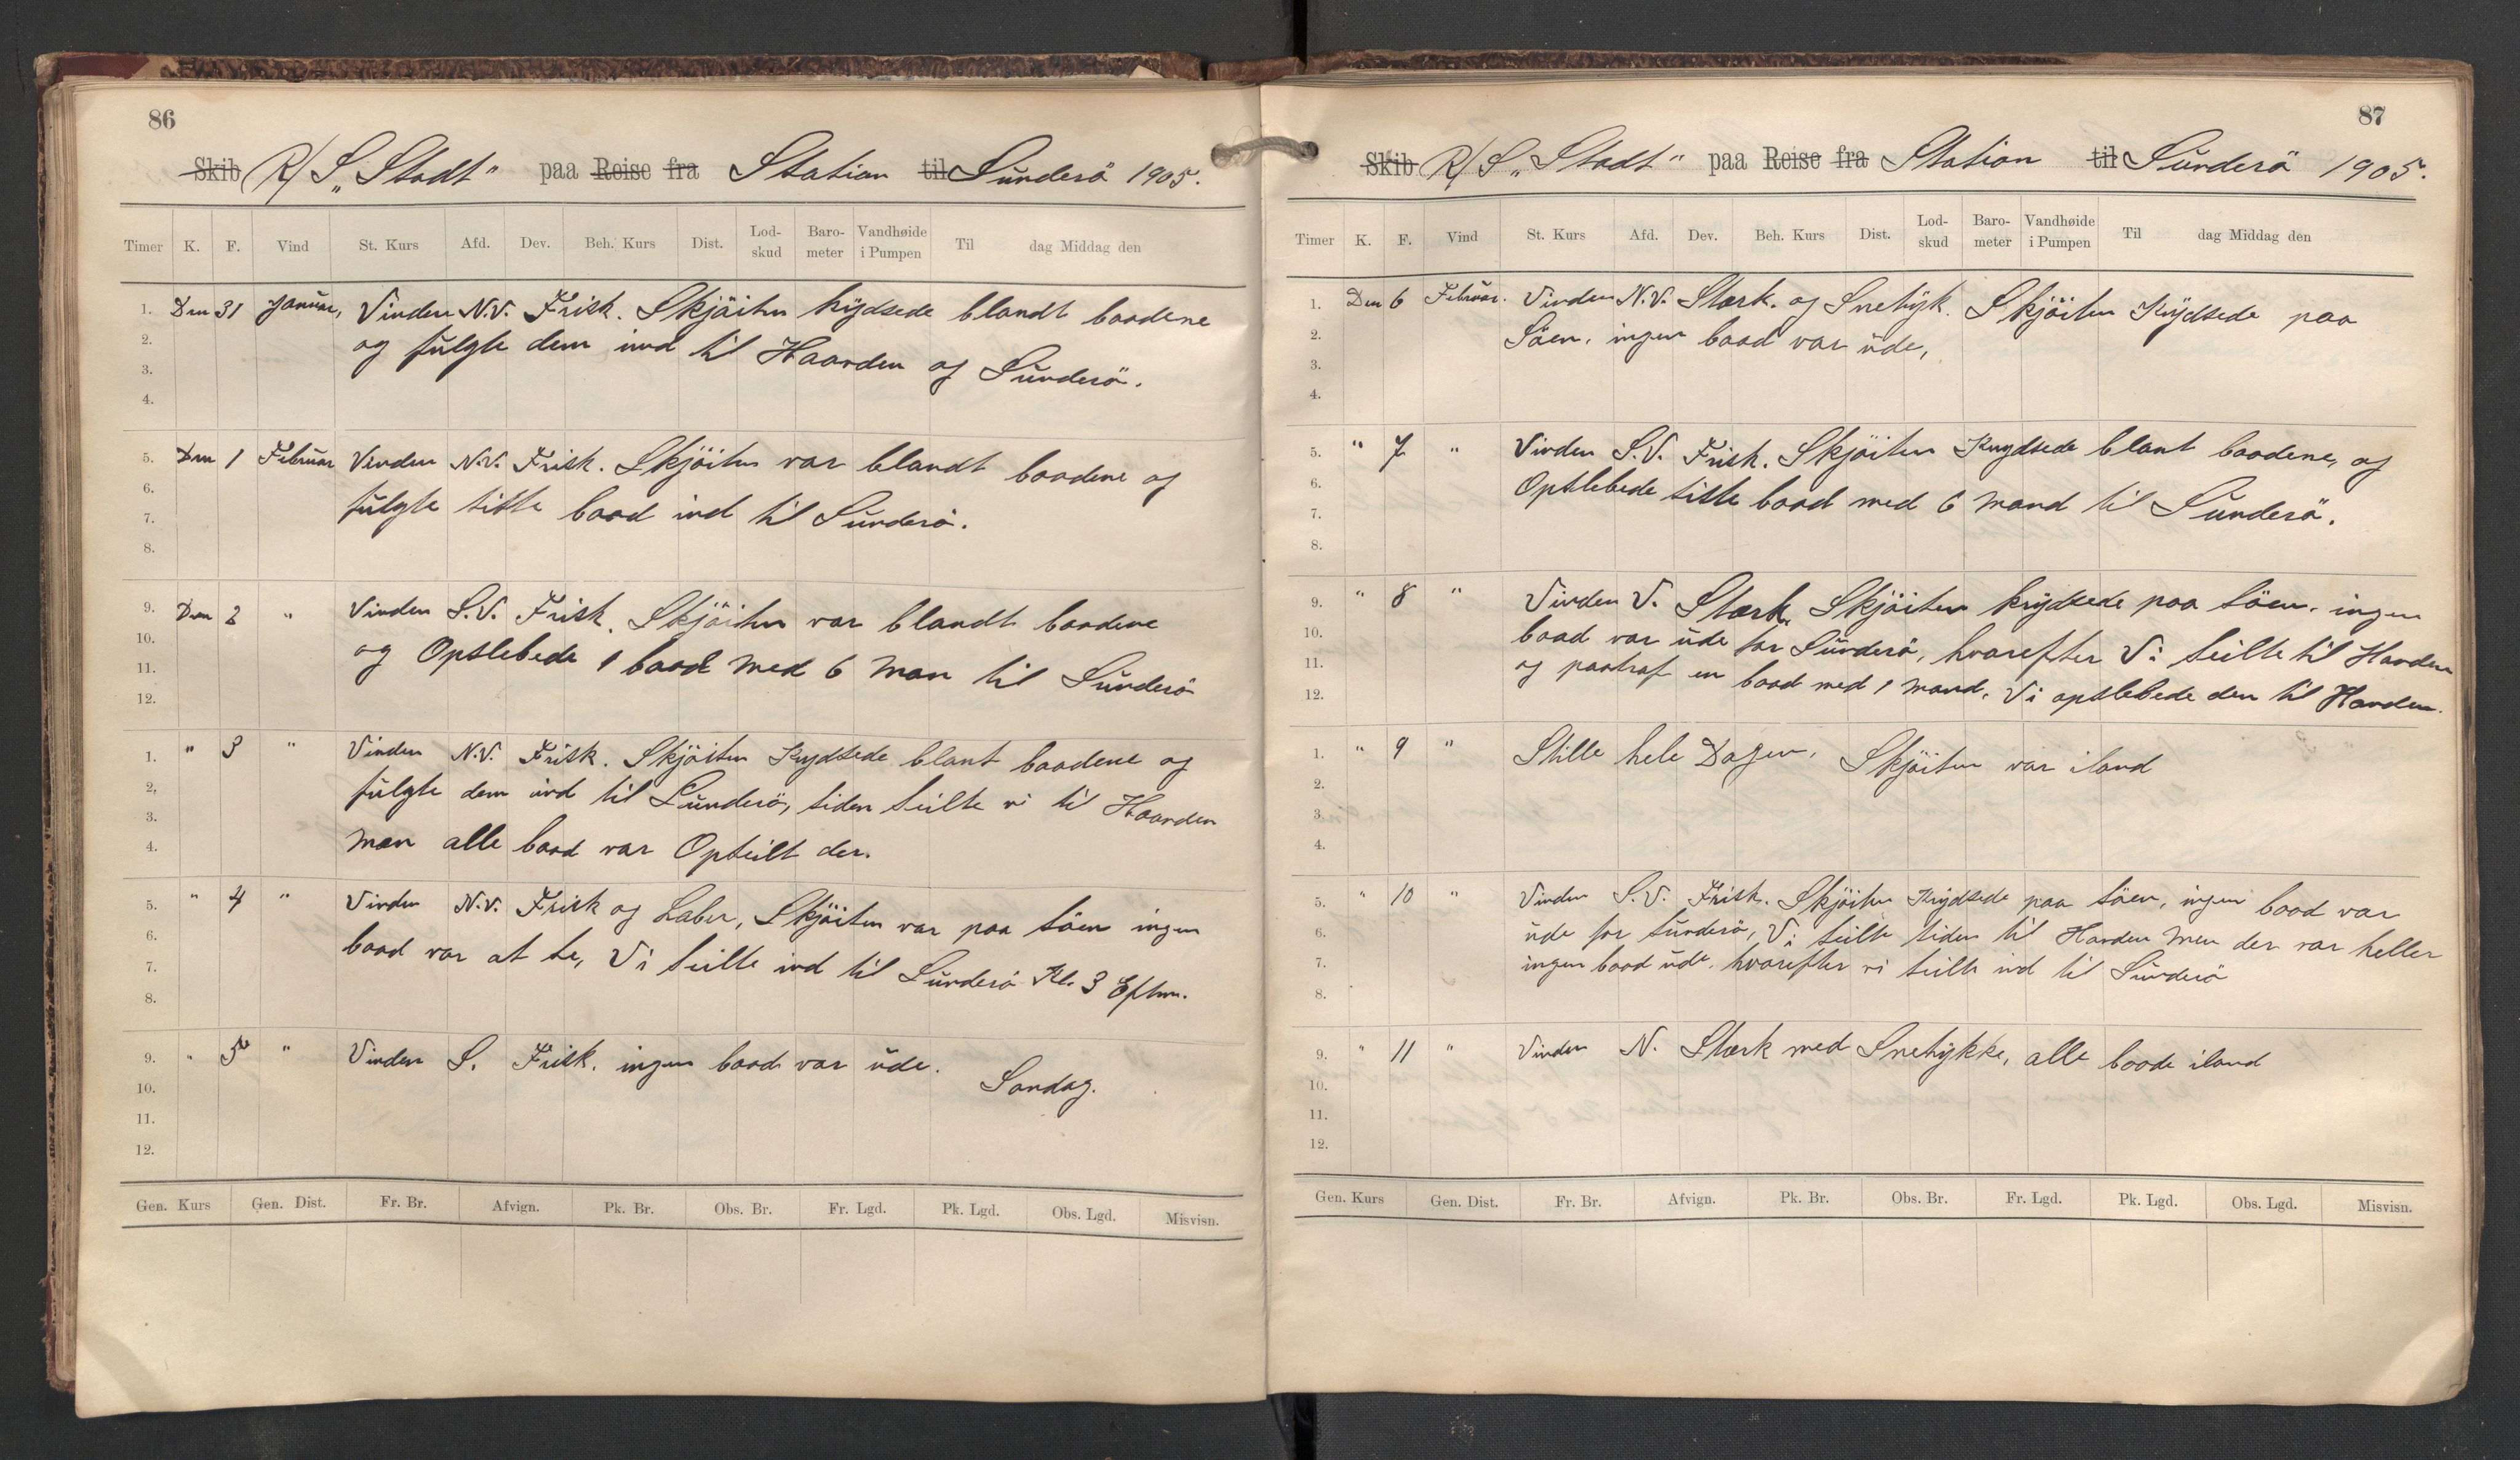 86
Skib R/S „Stadt" paa Reise fra Station til Sunderö 1905.
Timer K. F. Vind St. Kurs Afd. Dev. Beh. Kurs Dist. Lod-skud Baro-meter Vandhøide i Pumpen Til dag Middag den
1. Den 31 Januar, Vinden N.V. Frisk. Skjöiten krydsede blandt baadene
2. og fulgte dem ind til Haarden og Sunderö.
3.
4.
5. Den 1 Februar Vinden N.V. Frisk. Skjöiten var blandt baadene og
6. fulgte siste baad ind til Sunderö.
7.
8.
9. Den 2 " Vinden S.V. Frisk. Skjöiten var blandt baadene
10. og Opslebede 1 baad med 6 man til Sunderö
11.
12.
1. " 3 " Vinden N.V. Frisk. Skjöiten Krydsede blant baadene og
2. fulgte dem ind til Sunderö, siden seilte vi til Haarden
3. men alle baad var Opseilt der.
4.
5. " 4 " Vinden N.V. Frisk og Laber, Skjöiten var paa söen ingen
6. baad var at se, Vi seilte ind til Sunderö Kl. 3 Eftm.
7.
8.
9. " 5te " Vinden S. Frisk. ingen baad var ude. Sondag.
10.
11.
12.
Gen. Kurs Gen. Dist. Fr. Br. Afvign. Pk. Br. Obs. Br. Fr. Lgd. Pk. Lgd. Obs. Lgd. Misvisn.
87
Skib R/S „Stadt" paa Reise fra Station til Sunderö 1905.
Timer K. F. Vind St. Kurs Afd. Dev. Beh. Kurs Dist. Lod-skud Baro-meter Vandhøide i Pumpen Til dag Middag den
1. Den 6 Februar. Vinden N.V. Stærk. og Snetyk. Skjöiten Krydsede paa
2. Söen, ingen baad var ude,
3.
4.
5. " 7 " Vinden S.V. Frisk. Skjöiten Krydsede blant baadene, og
6. Opslebede siste baad med 6 mand til Sunderö.
7.
8.
9. " 8 " Vinden V. Stærk, Skjöiten krydsede paa söen. ingen
10. baad var ude for Sunderö, hvorefter Vi seilte til Harden
11. og paatraf en baad med 1 mand, Vi opslebede den til Harden.
12.
1. " 9 " Stille hele Dagen, Skjöiten var iland
2.
3.
4.
5. " 10 " Vinden S.V. Frisk. Skjöiten Krydsede paa söen, ingen baad var
6. ude for Sunderö, Vi seilte siden til Harden men der var heller
7. ingen baad ude. hvorefter vi seilte ind til Sunderö
8.
9. " 11 " Vinden N. Stærk med Snetykke, alle baade iland
10.
11.
12.
Gen. Kurs Gen. Dist. Fr. Br. Afvign. Pk. Br. Obs. Br. Fr. Lgd. Pk. Lgd. Obs. Lgd. Misvisn.